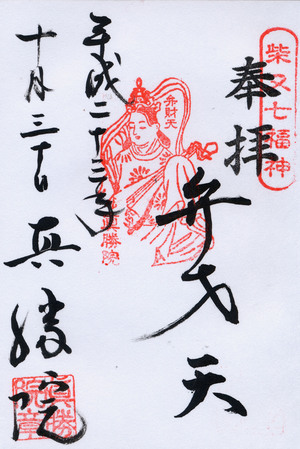 柴又七福神
奉拝
弁才天
弁財天
眞勝院
平成二十三年
十月三十日
真勝院